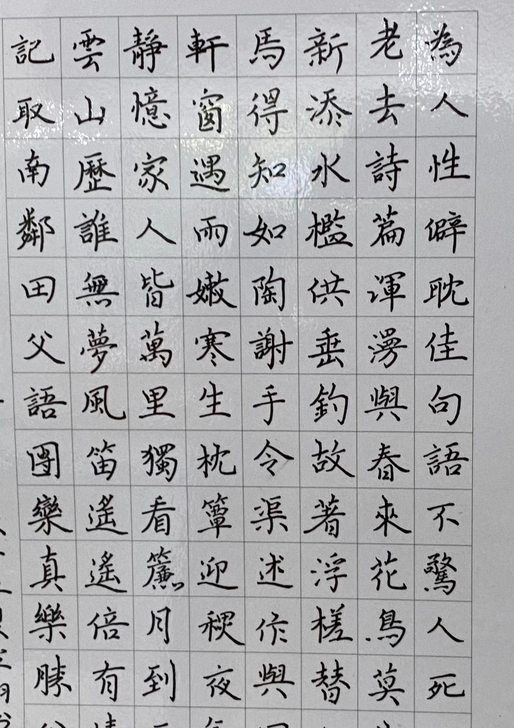 為人性僻耽佳句語不驚人死
老去詩篇渾漫與春來花鳥莫
新添水檻供垂釣故著浮槎替
焉得知如陶謝手令渠述作與
軒窗遇雨嫩寒生枕簟迎夜
靜憶家人皆萬里獨看簾月到
雲山歷誰無夢風笛遙遙倍有
記取南鄰田父語團欒真樂勝